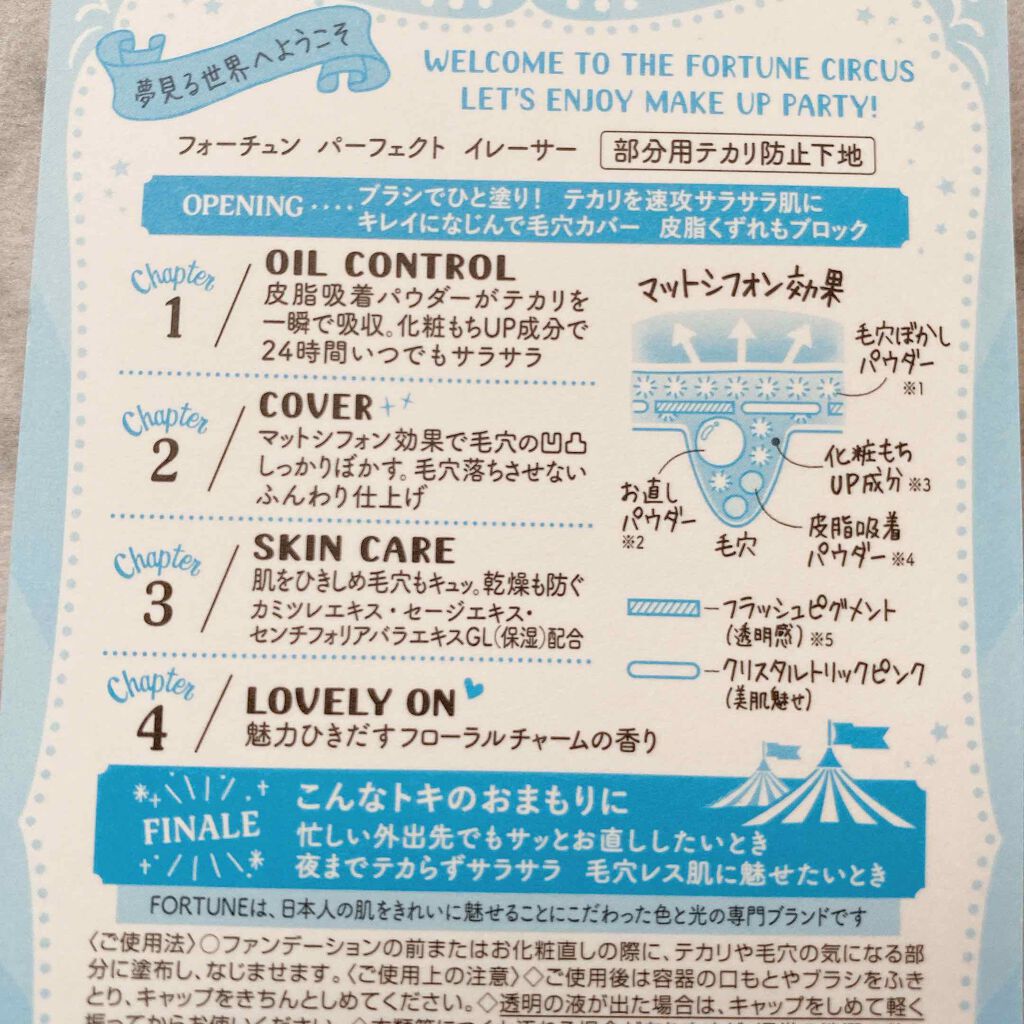 夢見る世界へようこそ
WELCOME TO THE FORTUNE CIRCUS
LET'S ENJOY MAKE UP PARTY!
フォーチュン パーフェクト イレーサー 部分用テカリ防止下地
OPENING‥‥ブラシでひと塗り! テカリを速攻サラサラ肌に
キレイになじんで毛穴カバー 皮脂くずれもブロック
Chapter 1
OIL CONTROL
皮脂吸着パウダーがテカリを
一瞬で吸収。化粧もちUP成分で
24時間いつでもサラサラ
Chapter 2
COVER
マットシフォン効果で毛穴の凹凸
しっかりぼかす。毛穴落ちさせない
ふんわり仕上げ
Chapter 3
SKIN CARE
肌をひきしめ毛穴もキュッ。乾燥も防ぐ
カミツレエキス・セージエキス・
センチフォリアバラエキスGL(保湿)配合
Chapter 4
LOVELY ON
魅力ひきだすフローラルチャームの香り
マットシフォン効果
毛穴ぼかし
パウダー
※1
化粧もち
UP成分※3
お直し
パウダー
※2
毛穴
皮脂吸着
パウダー※4
フラッシュピグメント
(透明感)※5
クリスタルトリックピンク
(美肌魅せ)
FINALE
こんなトキのおまもりに
忙しい外出先でもサッとお直ししたいとき
夜までテカらずサラサラ 毛穴レス肌に魅せたいとき
FORTUNEは、日本人の肌をきれいに魅せることにこだわった色と光の専門ブランドです
〈ご使用法〉○ファンデーションの前またはお化粧直しの際に、テカリや毛穴の気になる部
分に塗布し、なじませます。〈ご使用上の注意〉◇ご使用後は容器の口もとやブラシをふき
とり、キャップをきちんとしめてください。◇透明の液が出た場合は、キャップをしめて軽く
振ってからお使いください。